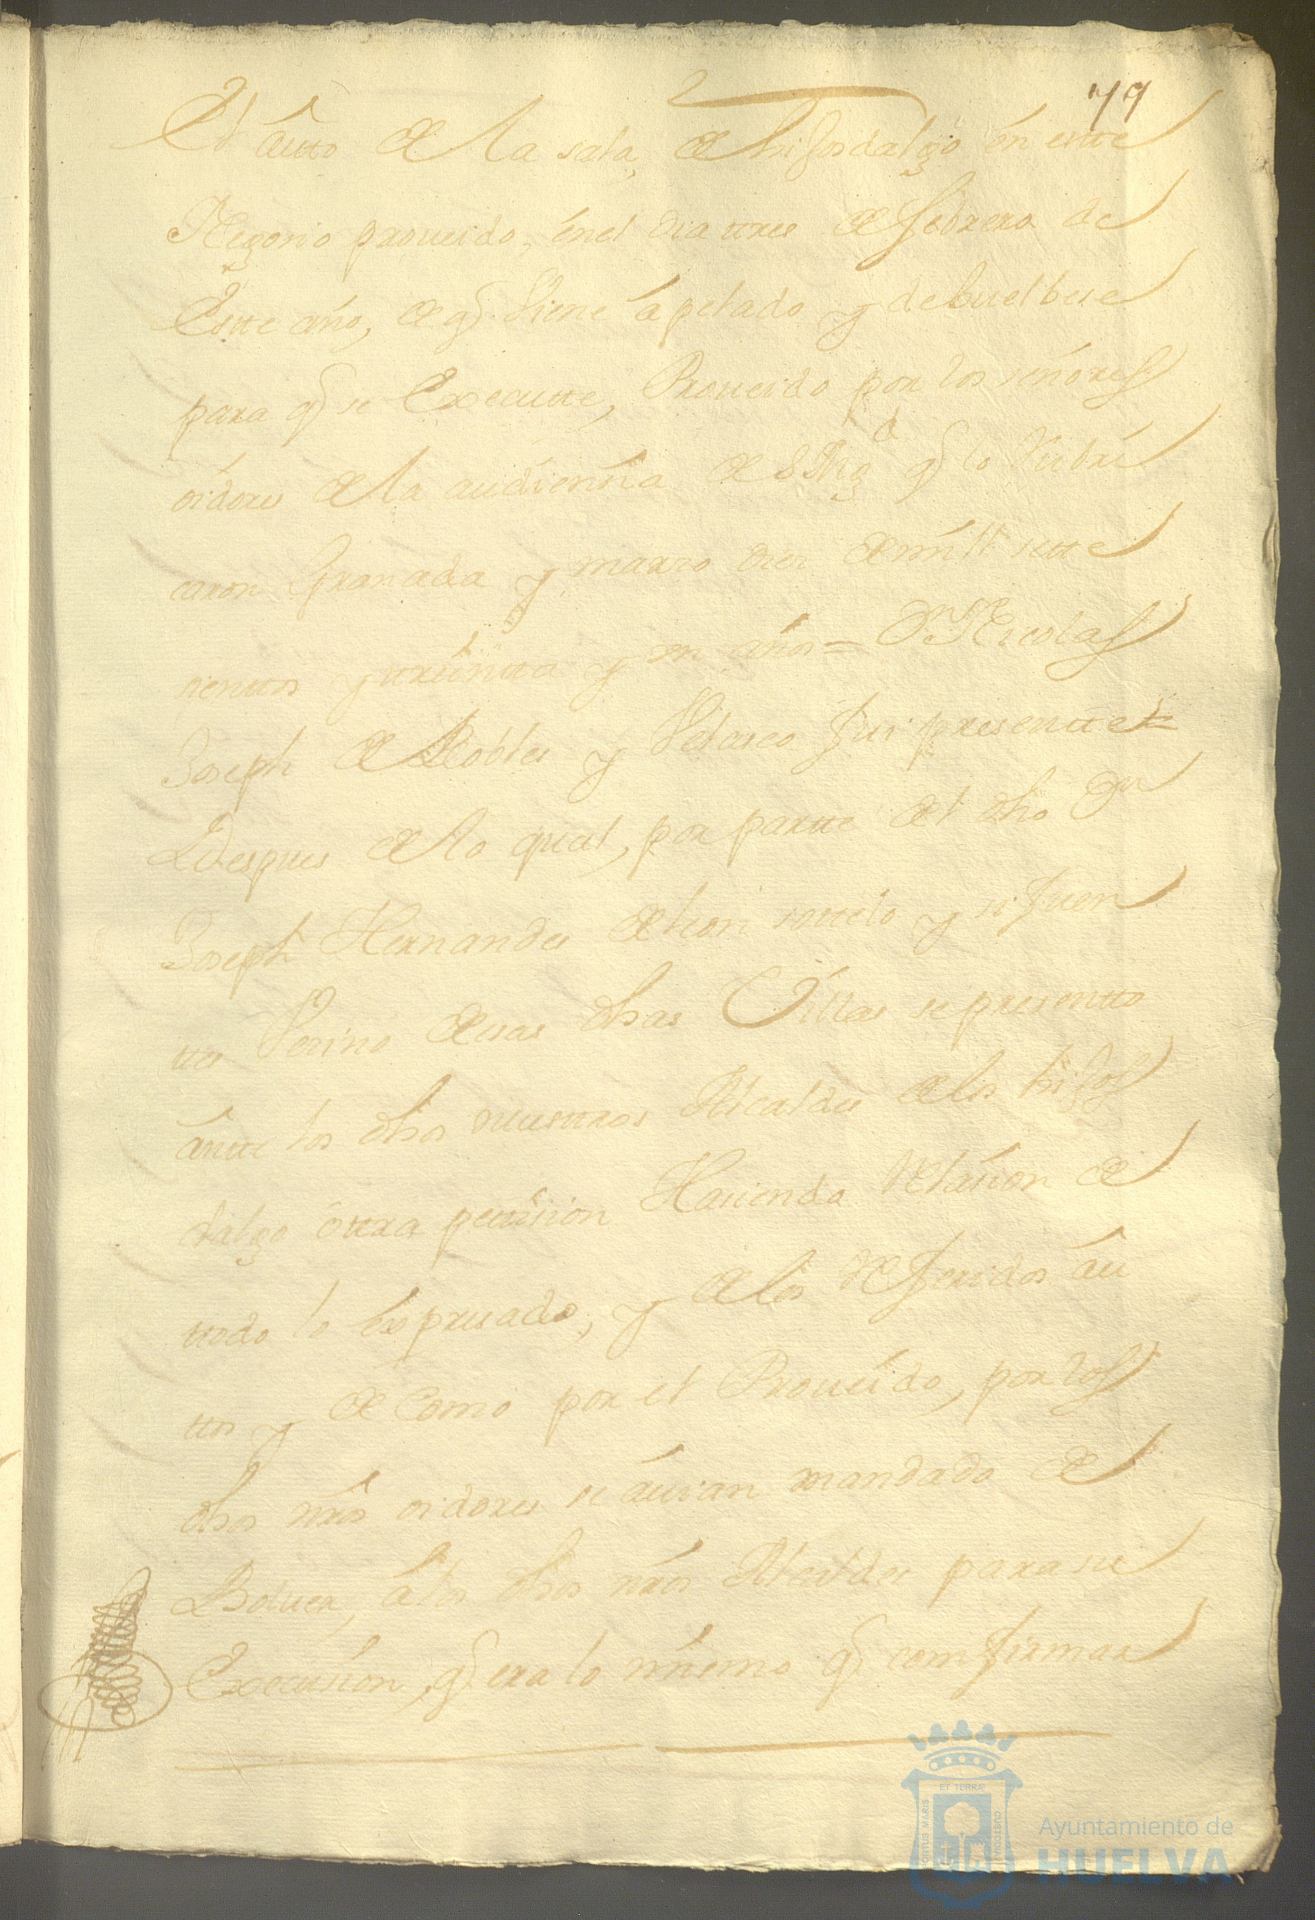 79
El auto de la sala de hijosdalgo en este
Negosio proueido, en el dia tres de febrero de
Este año, de q̃ Viene apelado y debuelbese
para q̃ se Execute, Proueido por los señores
oidores de la audiencia de S Mg.d q̃ lo Rubri
caron Granada y marzo diez de mill sette
sientos y treinta y un años = Dn Nicolas
Joseph de Robles y Velasco fui presente =
Y Despues de lo qual, por parte del dho Dn
Joseph Hernandes de leon sottelo y sifuen
tes Vezino de esas dhas Villas se presentto
ante los dhos nuestros Alcaldes de los hijos
dalgo otra petision Hasiendo Relasion de
ttodo lo expresado, y de los Referidos au
ttos y de como por el Proueido, por los
dhos nr̃os oidores se auian mandado de
Boluer, a los dhos nr̃os Alcaldes para su
Execusion, q̃ era lo mismo q̃ comfirmar
Ayuntamiento de
HUELVA